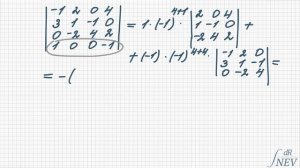 |-1 2 0 4|
|3 1 -1 0|
|0 -2 4 2|
|1 0 0 -1| = 1·(-1)^{4+1} |2 0 4|
|1 -1 0|
|-2 4 2| +
+(-1)·(-1)^{4+4}· |-1 2 0|
|3 1 -1|
|0 -2 4| =
= -(
dR